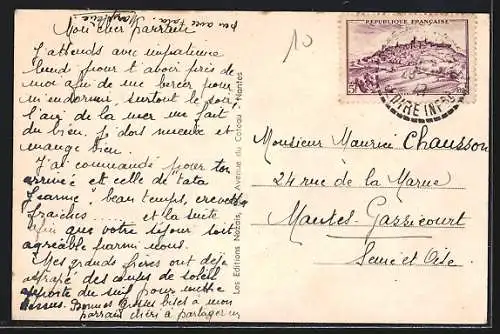 par avec tata
Mon cher parrain
J'attends avec impatience
lundi pour t'avoir près de
moi afin de me bercer pour
m'endormir, surtout le soir,
l'air de la mer me fait
du bien. Je dors mieux et
mange bien.
J'ai commandé pour ton
arrivée et celle de "tata
Jeanne", beau temps, crevettes
fraîches ..... et la suite
afin que votre séjour soit
agréable parmi nous.
Mes grands frères ont déjà
attrapé des coups de soleil
apporte du
pour mettre
dessus. Bonnes Grosses bises à mon
parrain chéri à partager
Les Editions Nozais, Avenue du Coteau - Nantes
10
RÉPUBLIQUE FRANÇAISE
LOIRE INFRE
Monsieur Maurice Chausson
24 rue de la Marne
Mantes-Gassicourt
Seine et Oise